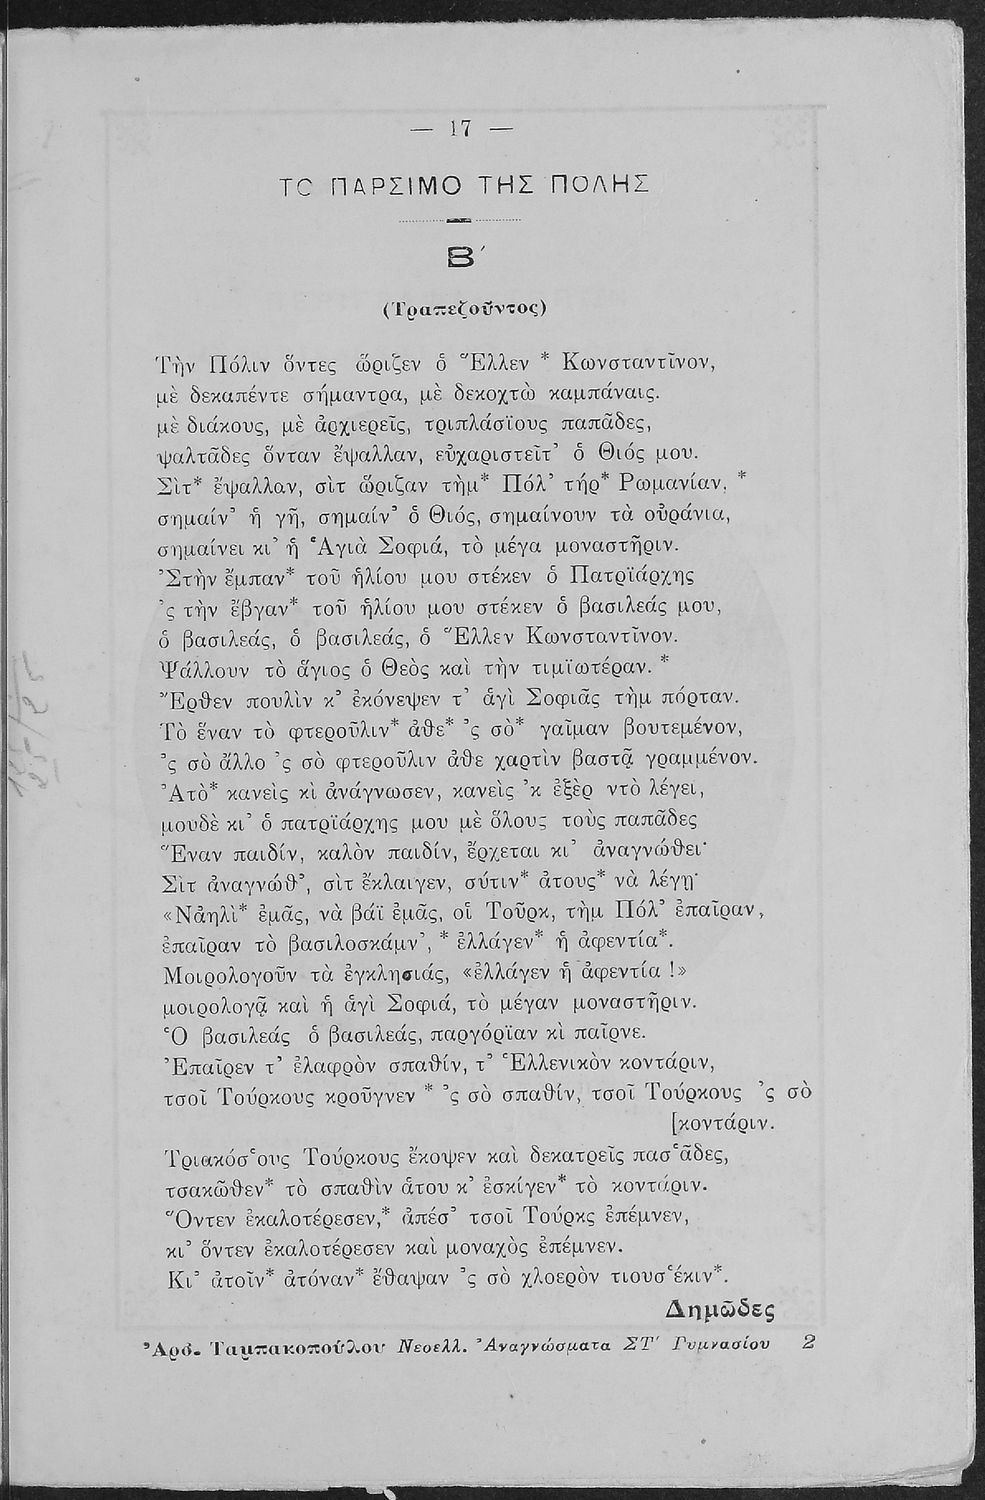 — 17 —
ΤΟ ΠΑΡΣΙΜΟ ΤΗΣ ΠΟΛΗΣ
Β΄
(Τραπεζοῦντος)
Τὴν Πόλιν ὅντες ὥριζεν ὁ Ἕλλεν * Κωνσταντῖνον,
μὲ δεκαπέντε σήμαντρα, μὲ δεκοχτὼ καμπάναις.
μὲ διάκους, μὲ ἀρχιερεῖς, τριπλάσϊους παπᾶδες,
ψαλτᾶδες ὅνταν ἔψαλλαν, εὐχαριστεῖτ᾽ ὁ Θιός μου.
Σὶτ* ἔψαλλαν, σὶτ ὥριζαν τὴμ* Πόλ᾽ τήρ* Ρωμανίαν, *
σημαίν᾽ ἡ γῆ, σημαίν᾽ ὁ Θιός, σημαίνουν τὰ οὐράνια,
σημαίνει κι᾽ ἡ Ἁγιὰ Σοφιά, τὸ μέγα μοναστῆριν.
Ἐστὴν ἔμπαν* τοῦ ἡλίου μου στέκεν ὁ Πατρϊάρχης
᾽ς τὴν ἔβγαν* τοῦ ἡλίου μου στέκεν ὁ βασιλεάς μου,
ὁ βασιλεάς, ὁ βασιλεάς, ὁ Ἕλλεν Κωνσταντῖνον.
Ψάλλουν τὸ ἅγιος ὁ Θεὸς καὶ τὴν τιμϊωτέραν. *
Ἔρθεν πουλὶν κ᾽ ἐκόνεψεν τ᾽ ἁγὶ Σοφιᾶς τὴμ πόρταν.
Τὸ ἕναν τὸ φτεροῦλιν* ἀθε* ᾽ς σὸ* γαῖμαν βουτεμένον,
᾽ς σὸ ἄλλο ᾽ς σὸ φτεροῦλιν ἀθε χαρτὶν βαστᾷ γραμμένον.
Ἀτὸ* κανεὶς κὶ ἀνάγνωσεν, κανεὶς ᾽κ ἐξὲρ ντὸ λέγει,
μουδὲ κι᾽ ὁ πατρϊάρχης μου μὲ ὅλους τοὺς παπᾶδες
Ἕναν παιδίν, καλὸν παιδίν, ἔρχεται κι᾽ ἀναγνώθει·
Σὶτ ἀναγνώθ᾽, σὶτ ἔκλαιγεν, σύτιν* ἀτους* νὰ λέγῃ·
«Νἀηλὶ* ἐμᾶς, νὰ βάϊ ἐμᾶς, οἱ Τοῦρκ, τὴμ Πόλ᾽ ἐπαῖραν,
ἐπαῖραν τὸ βασιλοσκάμν᾽, * ἐλλάγεν* ἡ ἀφεντία*.
Μοιρολογοῦν τὰ ἐγκλησιάς, «ἐλλάγεν ἡ ἀφεντία !»
μοιρολογᾷ καὶ ἡ ἁγὶ Σοφιά, τὸ μέγαν μοναστῆριν.
Ὁ βασιλεάς ὁ βασιλεάς, παργόρϊαν κὶ παῖρνε.
Ἐπαῖρεν τ᾽ ἐλαφρὸν σπαθίν, τ᾽ Ἑλλενικὸν κοντάριν,
τσοῖ Τούρκους κροῦγνεν * ᾽ς σὸ σπαθίν, τσοῖ Τούρκους ᾽ς σὸ
[κοντάριν.
Τριακόσ῾ους Τούρκους ἔκοψεν καὶ δεκατρεῖς πασ῾ᾶδες,
τσακῶθεν* τὸ σπαθὶν ἀτου κ᾽ ἐσκίγεν* τὸ κοντάριν.
Ὅντεν ἐκαλοτέρεσεν,* ἀπέσ᾽ τσοῖ Τούρκς ἐπέμνεν,
κι᾽ ὅντεν ἐκαλοτέρεσεν καὶ μοναχὸς ἐπέμνεν.
Κι᾽ ἀτοῖν* ἀτόναν* ἔθαψαν ᾽ς σὸ χλοερὸν τιουσ῾έκιν*.
Δημῶδες
Ἀρδ. Ταμπακοπούλου Νεοελλ. Ἀναγνώσματα ΣΤ΄ Γυμνασίου 2